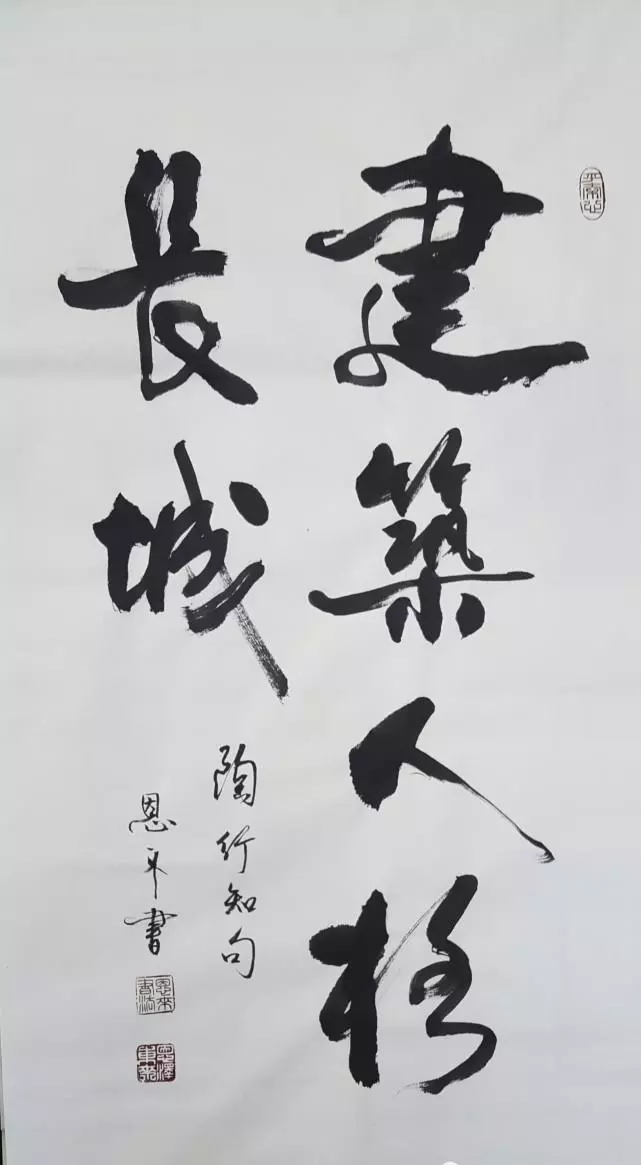 建築人格
長城
陶行知句
恩平書